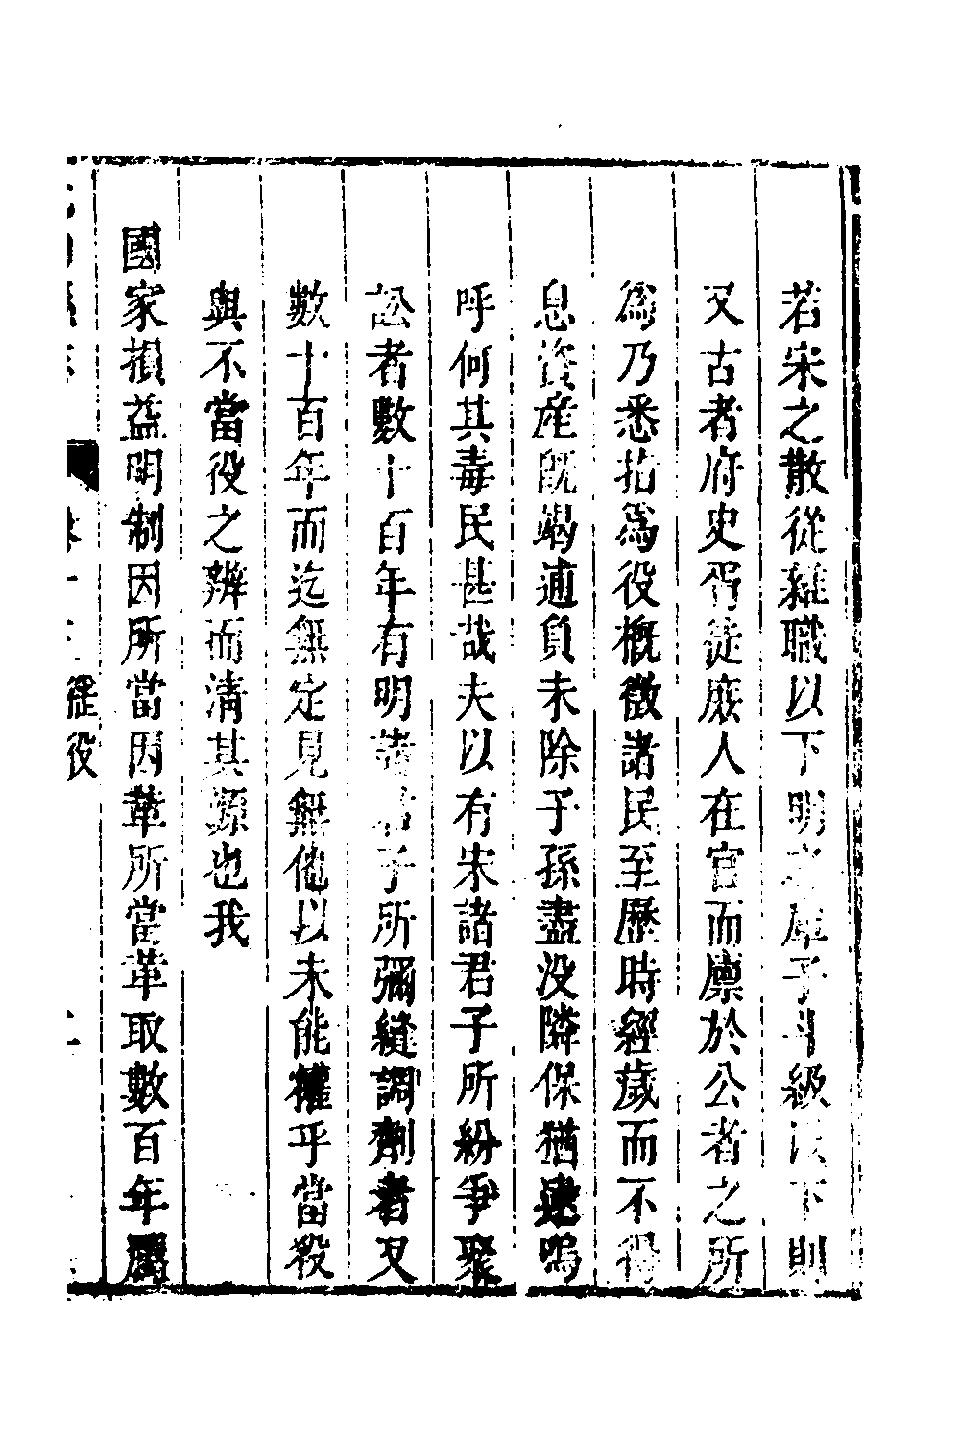 若宋之散從雜職以下明之庫子斗級以下則
又古者府史胥徒庶人在官而廩於公者之所
爲乃悉括爲役概徵諸民至歷時經歲而不得
息資産既竭逋負未除子孫盡没隣保猶逮嗚
呼何其毒民甚哉夫以有宋諸君子所紛爭聚
訟者數十百年有明諸君子所彌縫調劑者又
數十百年而迄無定見無他以未能權乎當役
與不當役之辨而淸其源也我
國家損益明制因所當因革所當革取數百年屬
徭役